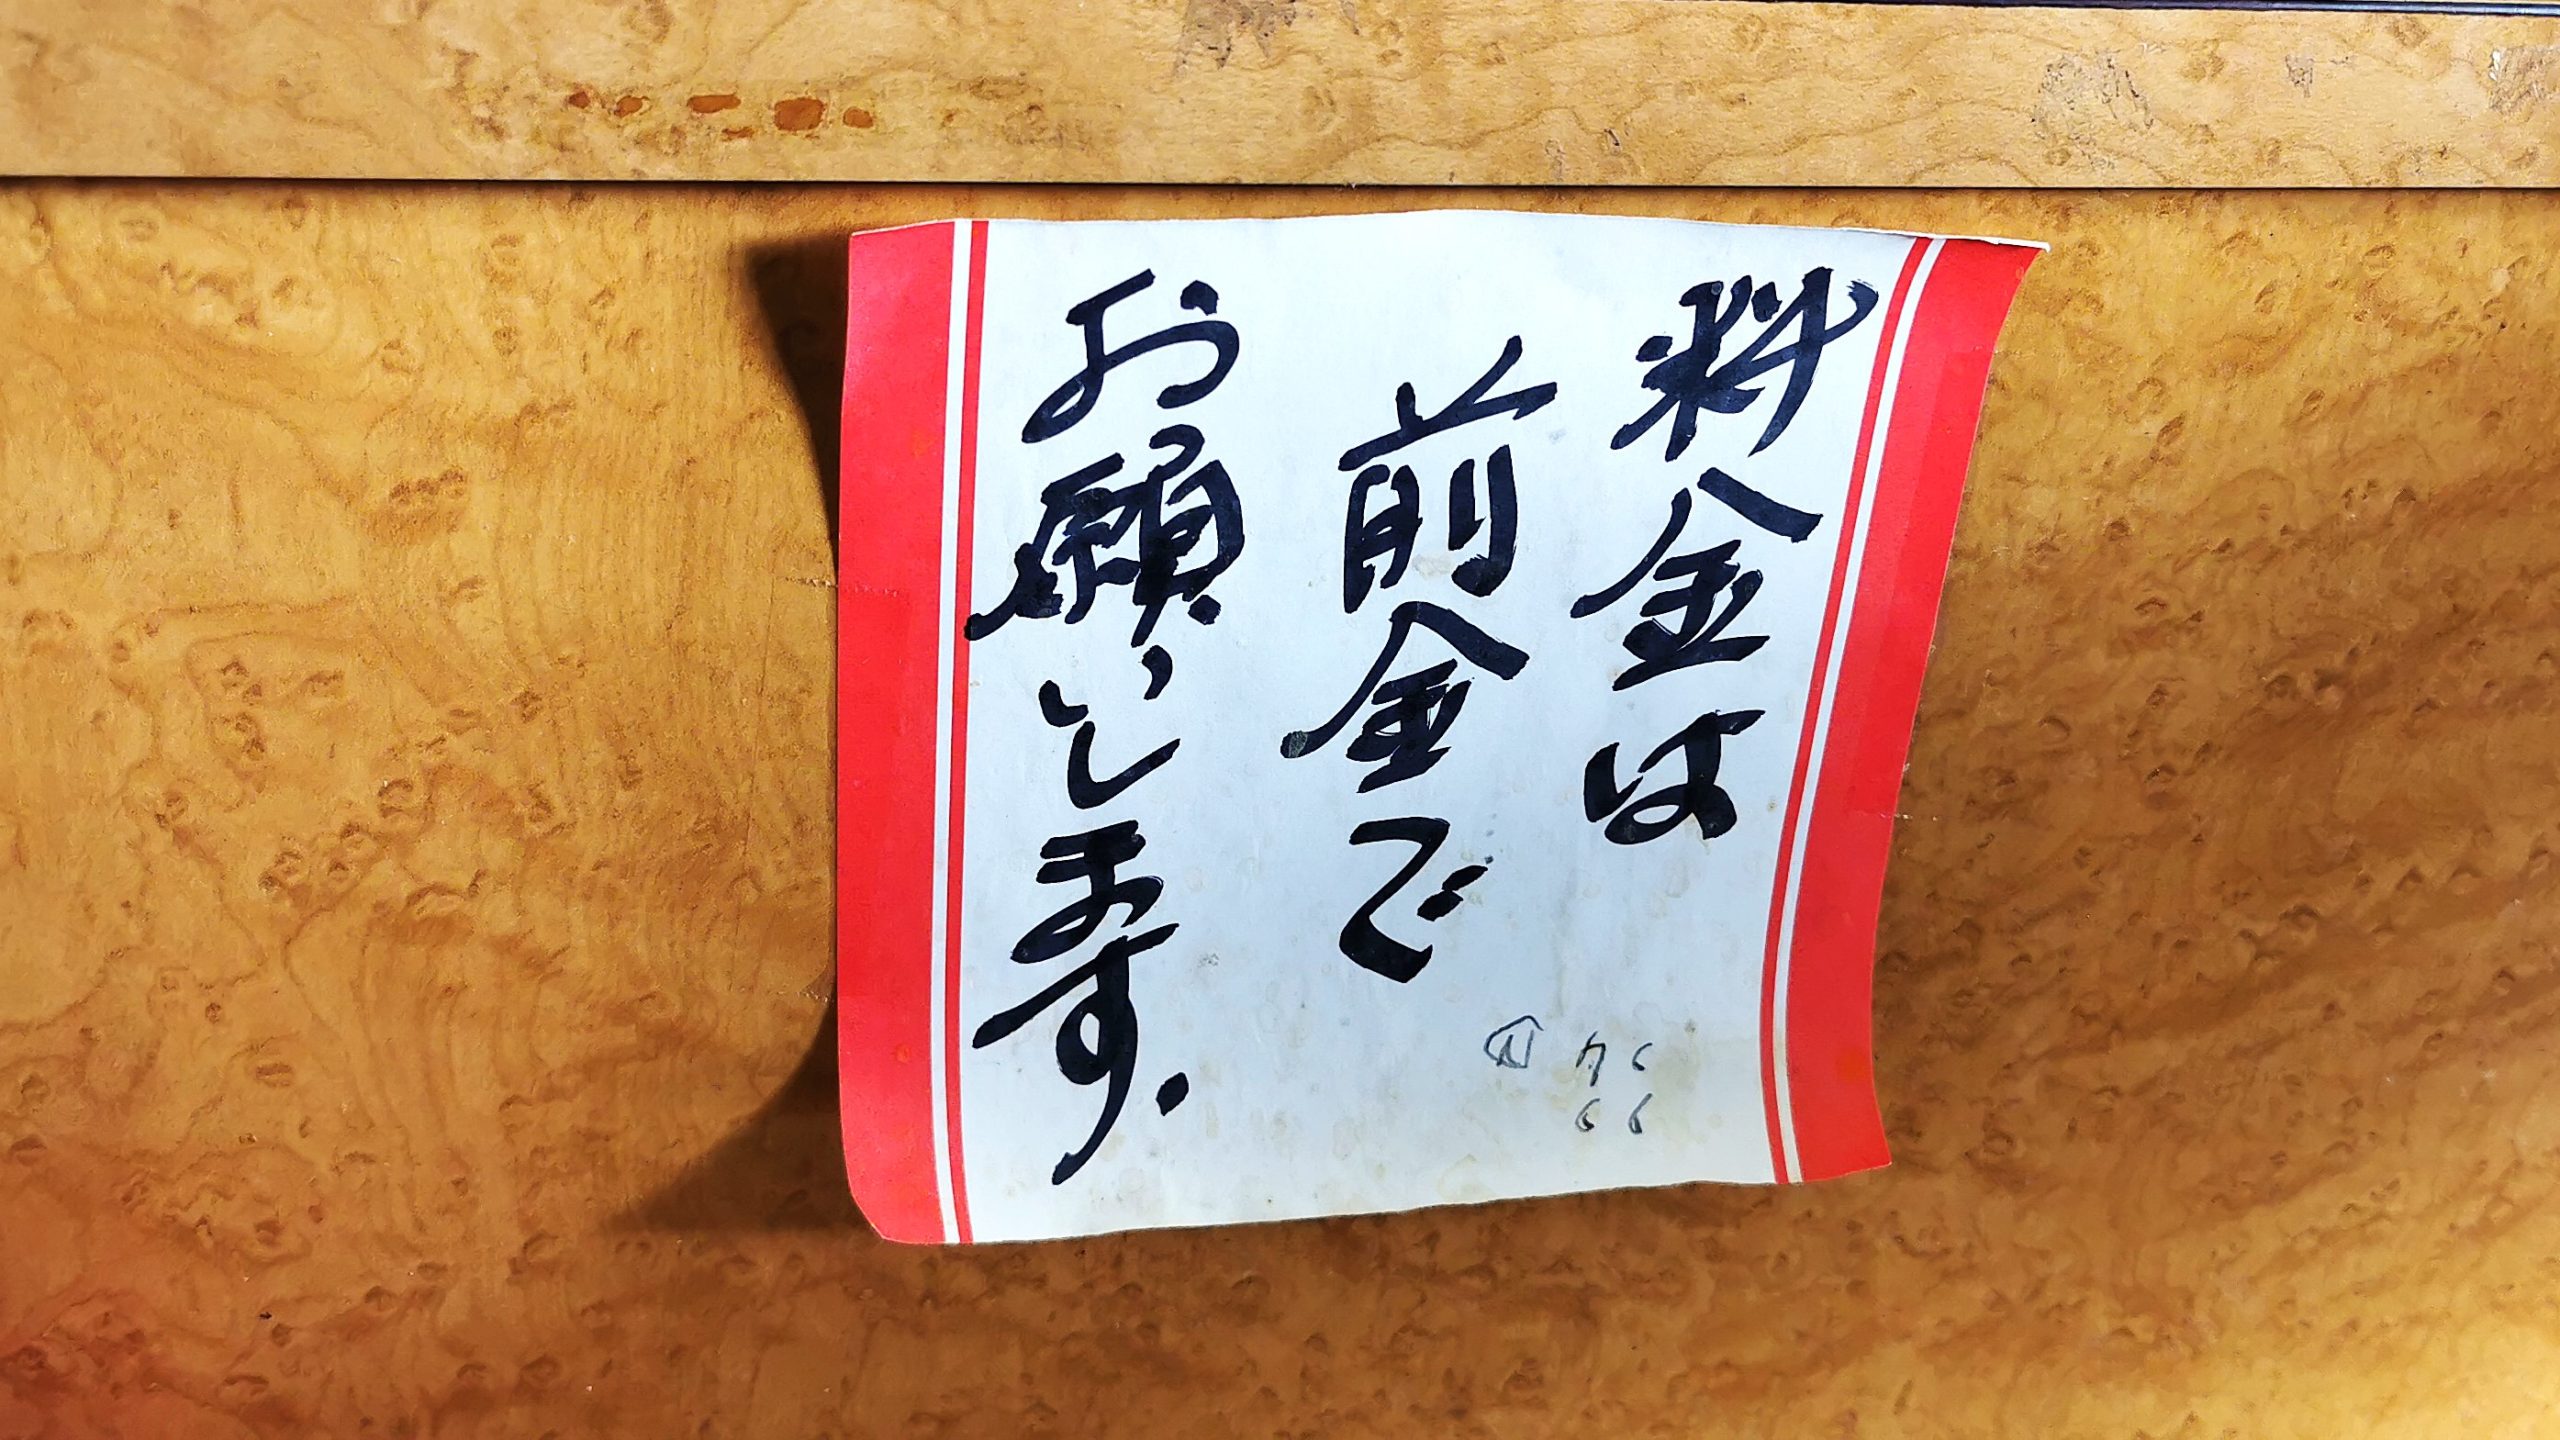 料金は
前金で
お願いします.